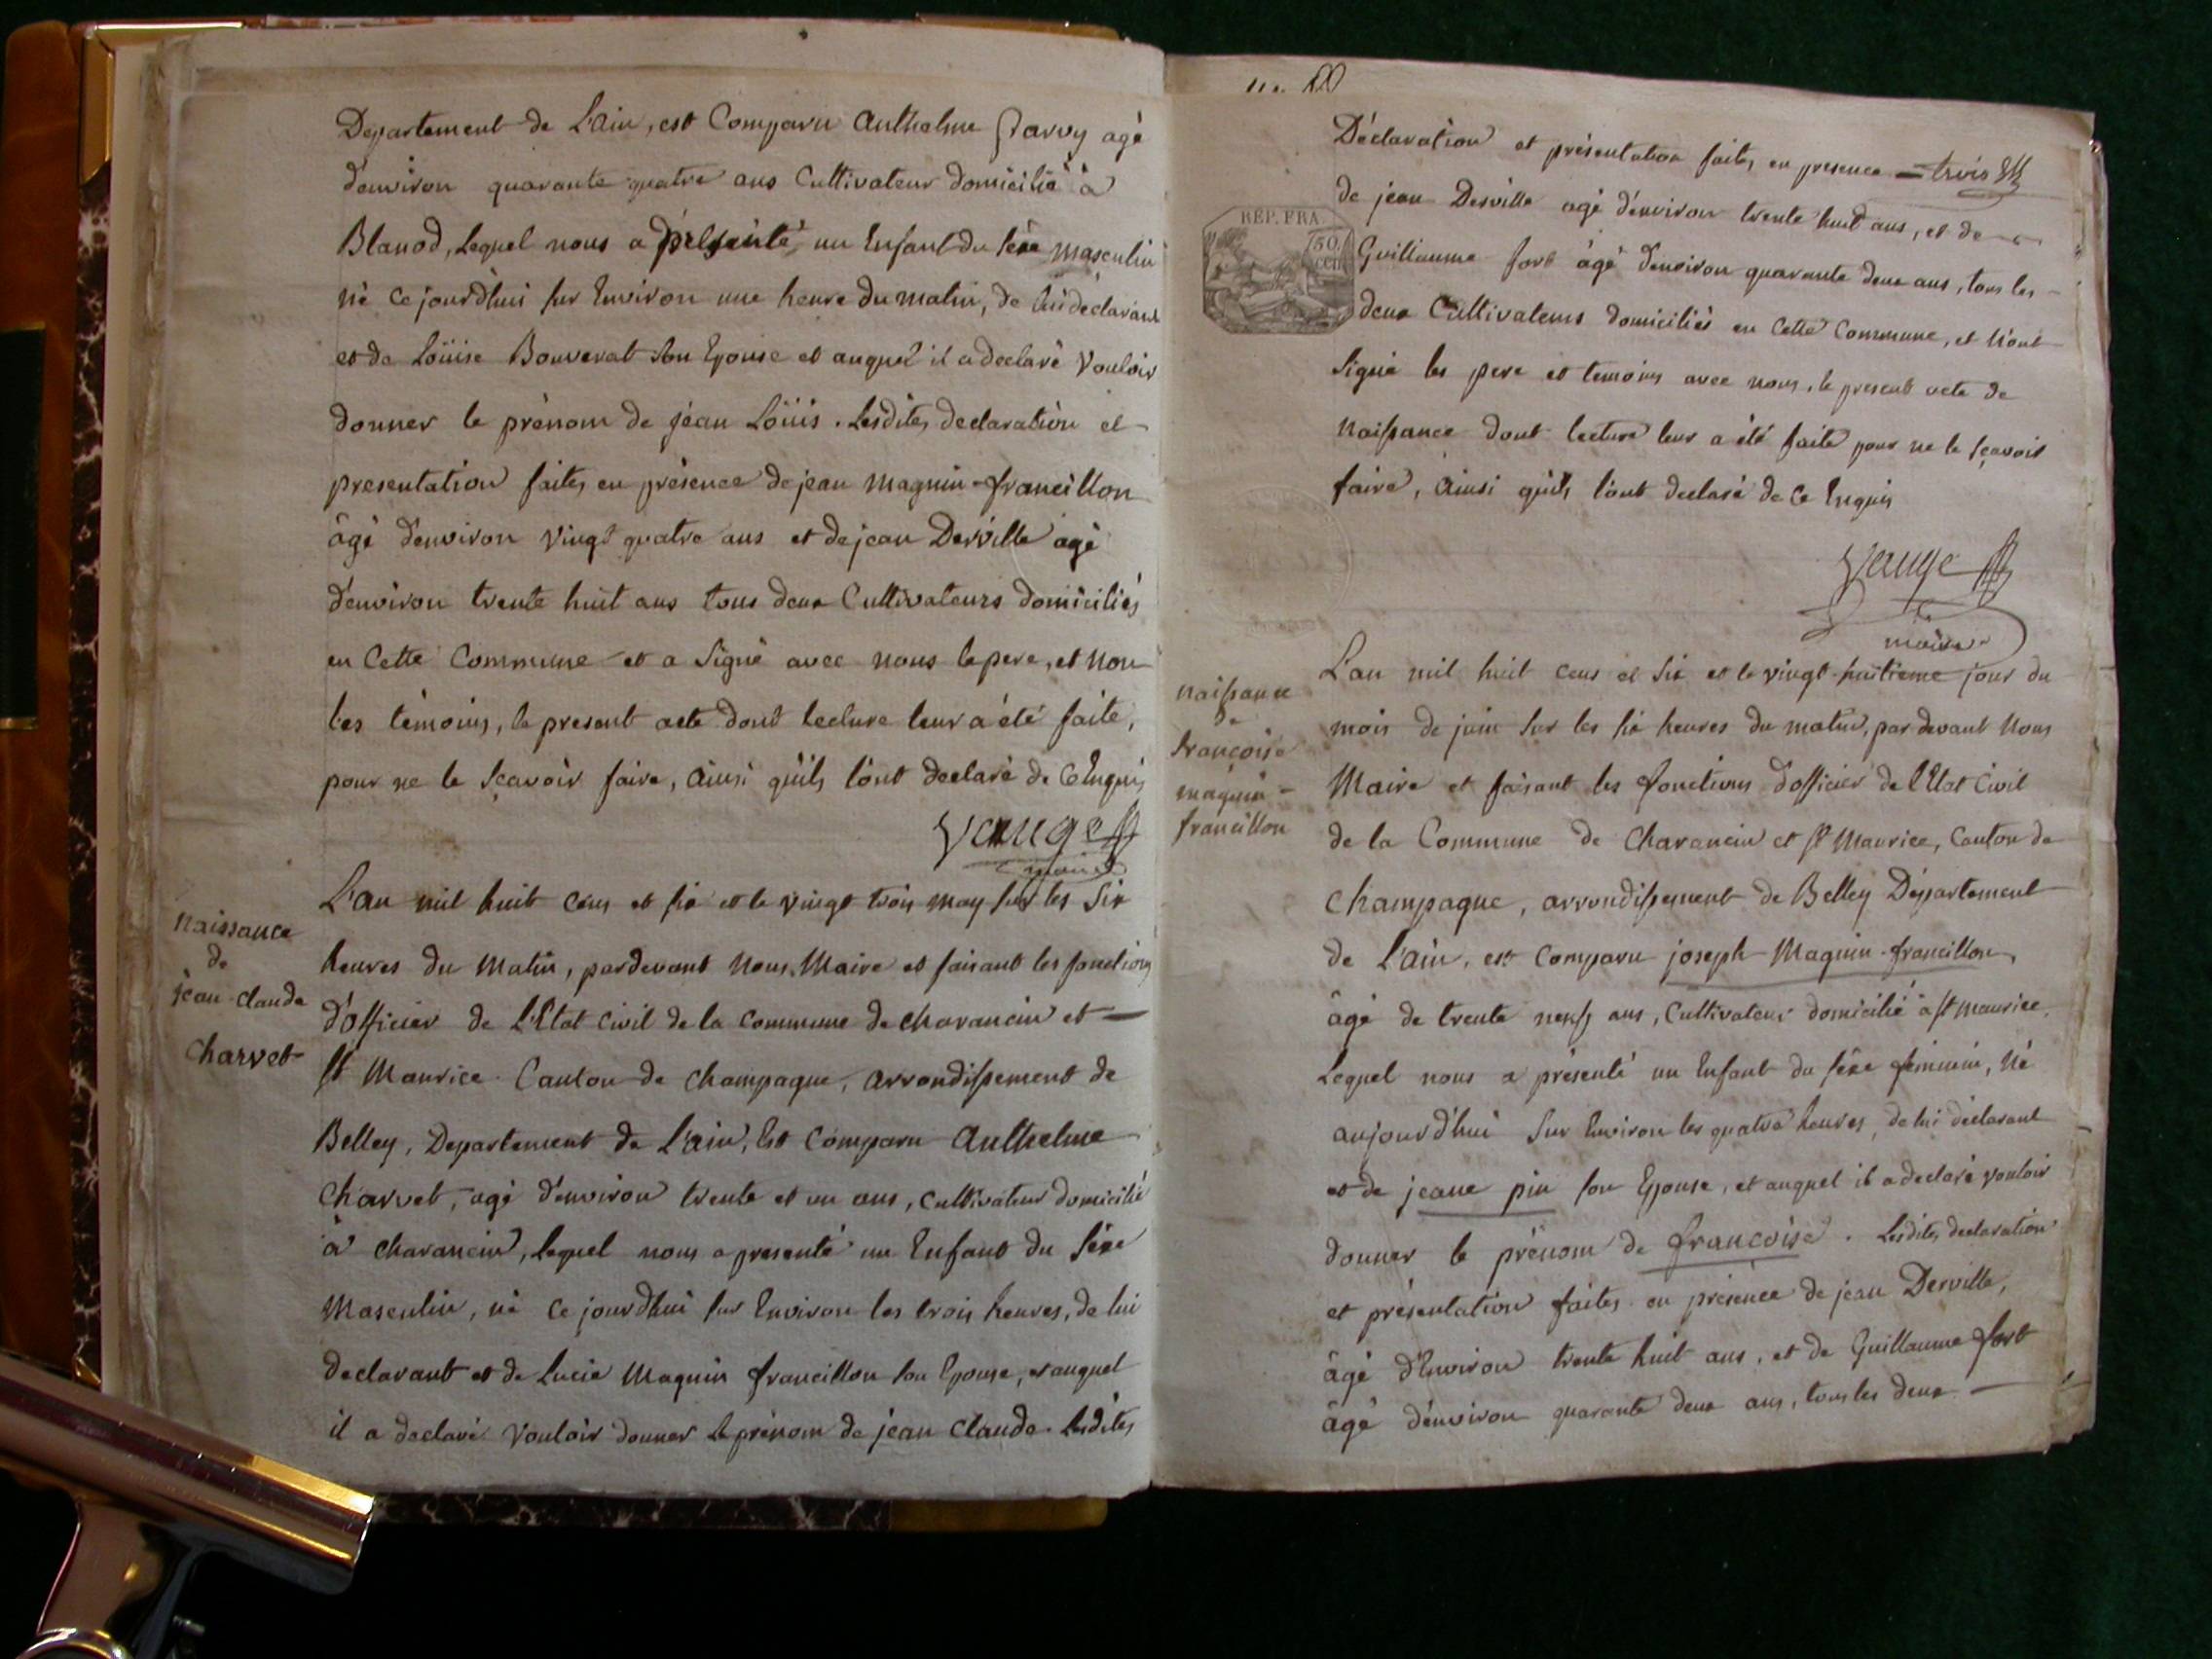 Departement de L'ain, est Comparu Anthelme Parvy agé
d'environ quarante quatre ans Cultivateur domicilié à
Blanod, Lequel nous a présenté un Enfant du sexe masculin
né Ce jourd'hui sur Environ une heure du matin, de lui déclarant
et de Loüise Bouverat son Epouse et auquel il a declaré vouloir
donner le prénom de jean Loüis. Lesdites declaration et
presentation faites en présence de jean Magnin-francillon
âgé d'environ vingt quatre ans et de jean Derville agé
d'environ trente huit ans tous deux Cultivateurs domiciliés
en Cette Commune et a Signé avec nous le pere, et non
les témoins, le present acte dont lecture leur a été faite,
pour ne le sçavoir faire, ainsi qu'ils l'ont declaré de Ce Enquis
Vauge
maire
naissance
de
jean-claude
Charvet
L'an mil huit cens et six et le vingt trois may sur les Six
heures du Matin, pardevant Nous Maire et faisant les fonctions
d'officier de L'Etat Civil de la Commune de charancin et
St Maurice Canton de Champagne, arrondissement de
Belley, Departement de L'ain, Est Comparu Anthelme
Charvet, agé d'environ trente et un ans, Cultivateur domicilié
à Charancin, lequel nous a presenté un Enfant du sexe
Masculin, né Ce jourd'hui sur Environ les trois heures, de lui
declarant et de Lucie Magnin francillon son Epouse, et auquel
il a declaré Vouloir donner le prénom de jean Claude. Lesdites
Déclaration et présentation faites en presence = trois
de jean Derville agé d'environ trente huit ans, et de
Guillaume fort âgé d'environ quarante deux ans, tous les
deux Cultivateurs domiciliés en Cette Commune, et n'ont
Signé les pere et temoins avec nous, le present acte de
naissance dont lecture leur a été faite pour ne le sçavoir
faire, ainsi qu'ils l'ont declaré de Ce Enquis
REP. FRA.
50
CEN
Vauge
maire
naissance
de
françoise
magnin-
francillon
L'an mil huit cens et six et le vingt-huitieme jour du
mois de juin sur les six heures du matin, par devant Nous
Maire et faisant les fonctions d'officier de l'Etat Civil
de la Commune de Charancin et St Maurice, Canton de
Champagne, arrondissement de Belley Département
de L'ain, est Comparu joseph Magnin-francillon,
âgé de trente neuf ans, Cultivateur domicilié à St Maurice,
Lequel nous a présenté un Enfant du sexe féminin, Né
aujourd'hui Sur Environ les quatre heures, de lui déclarant
et de jeane pin son Epouse, et auquel il a declaré vouloir
donner le prénom de françoise. Lesdites declaration
et présentation faites en présence de jean Derville,
âgé d'Environ trente huit ans, et de Guillaume fort
âgé d'environ quarante deux ans, tous les deux